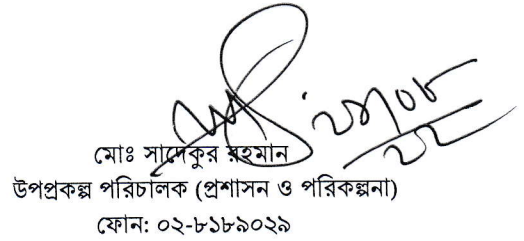 মোঃ সাদেকুর রহমান
উপপ্রকল্প পরিচালক (প্রশাসন ও পরিকল্পনা)
ফোন: ০২-৮১৮৯০২৯